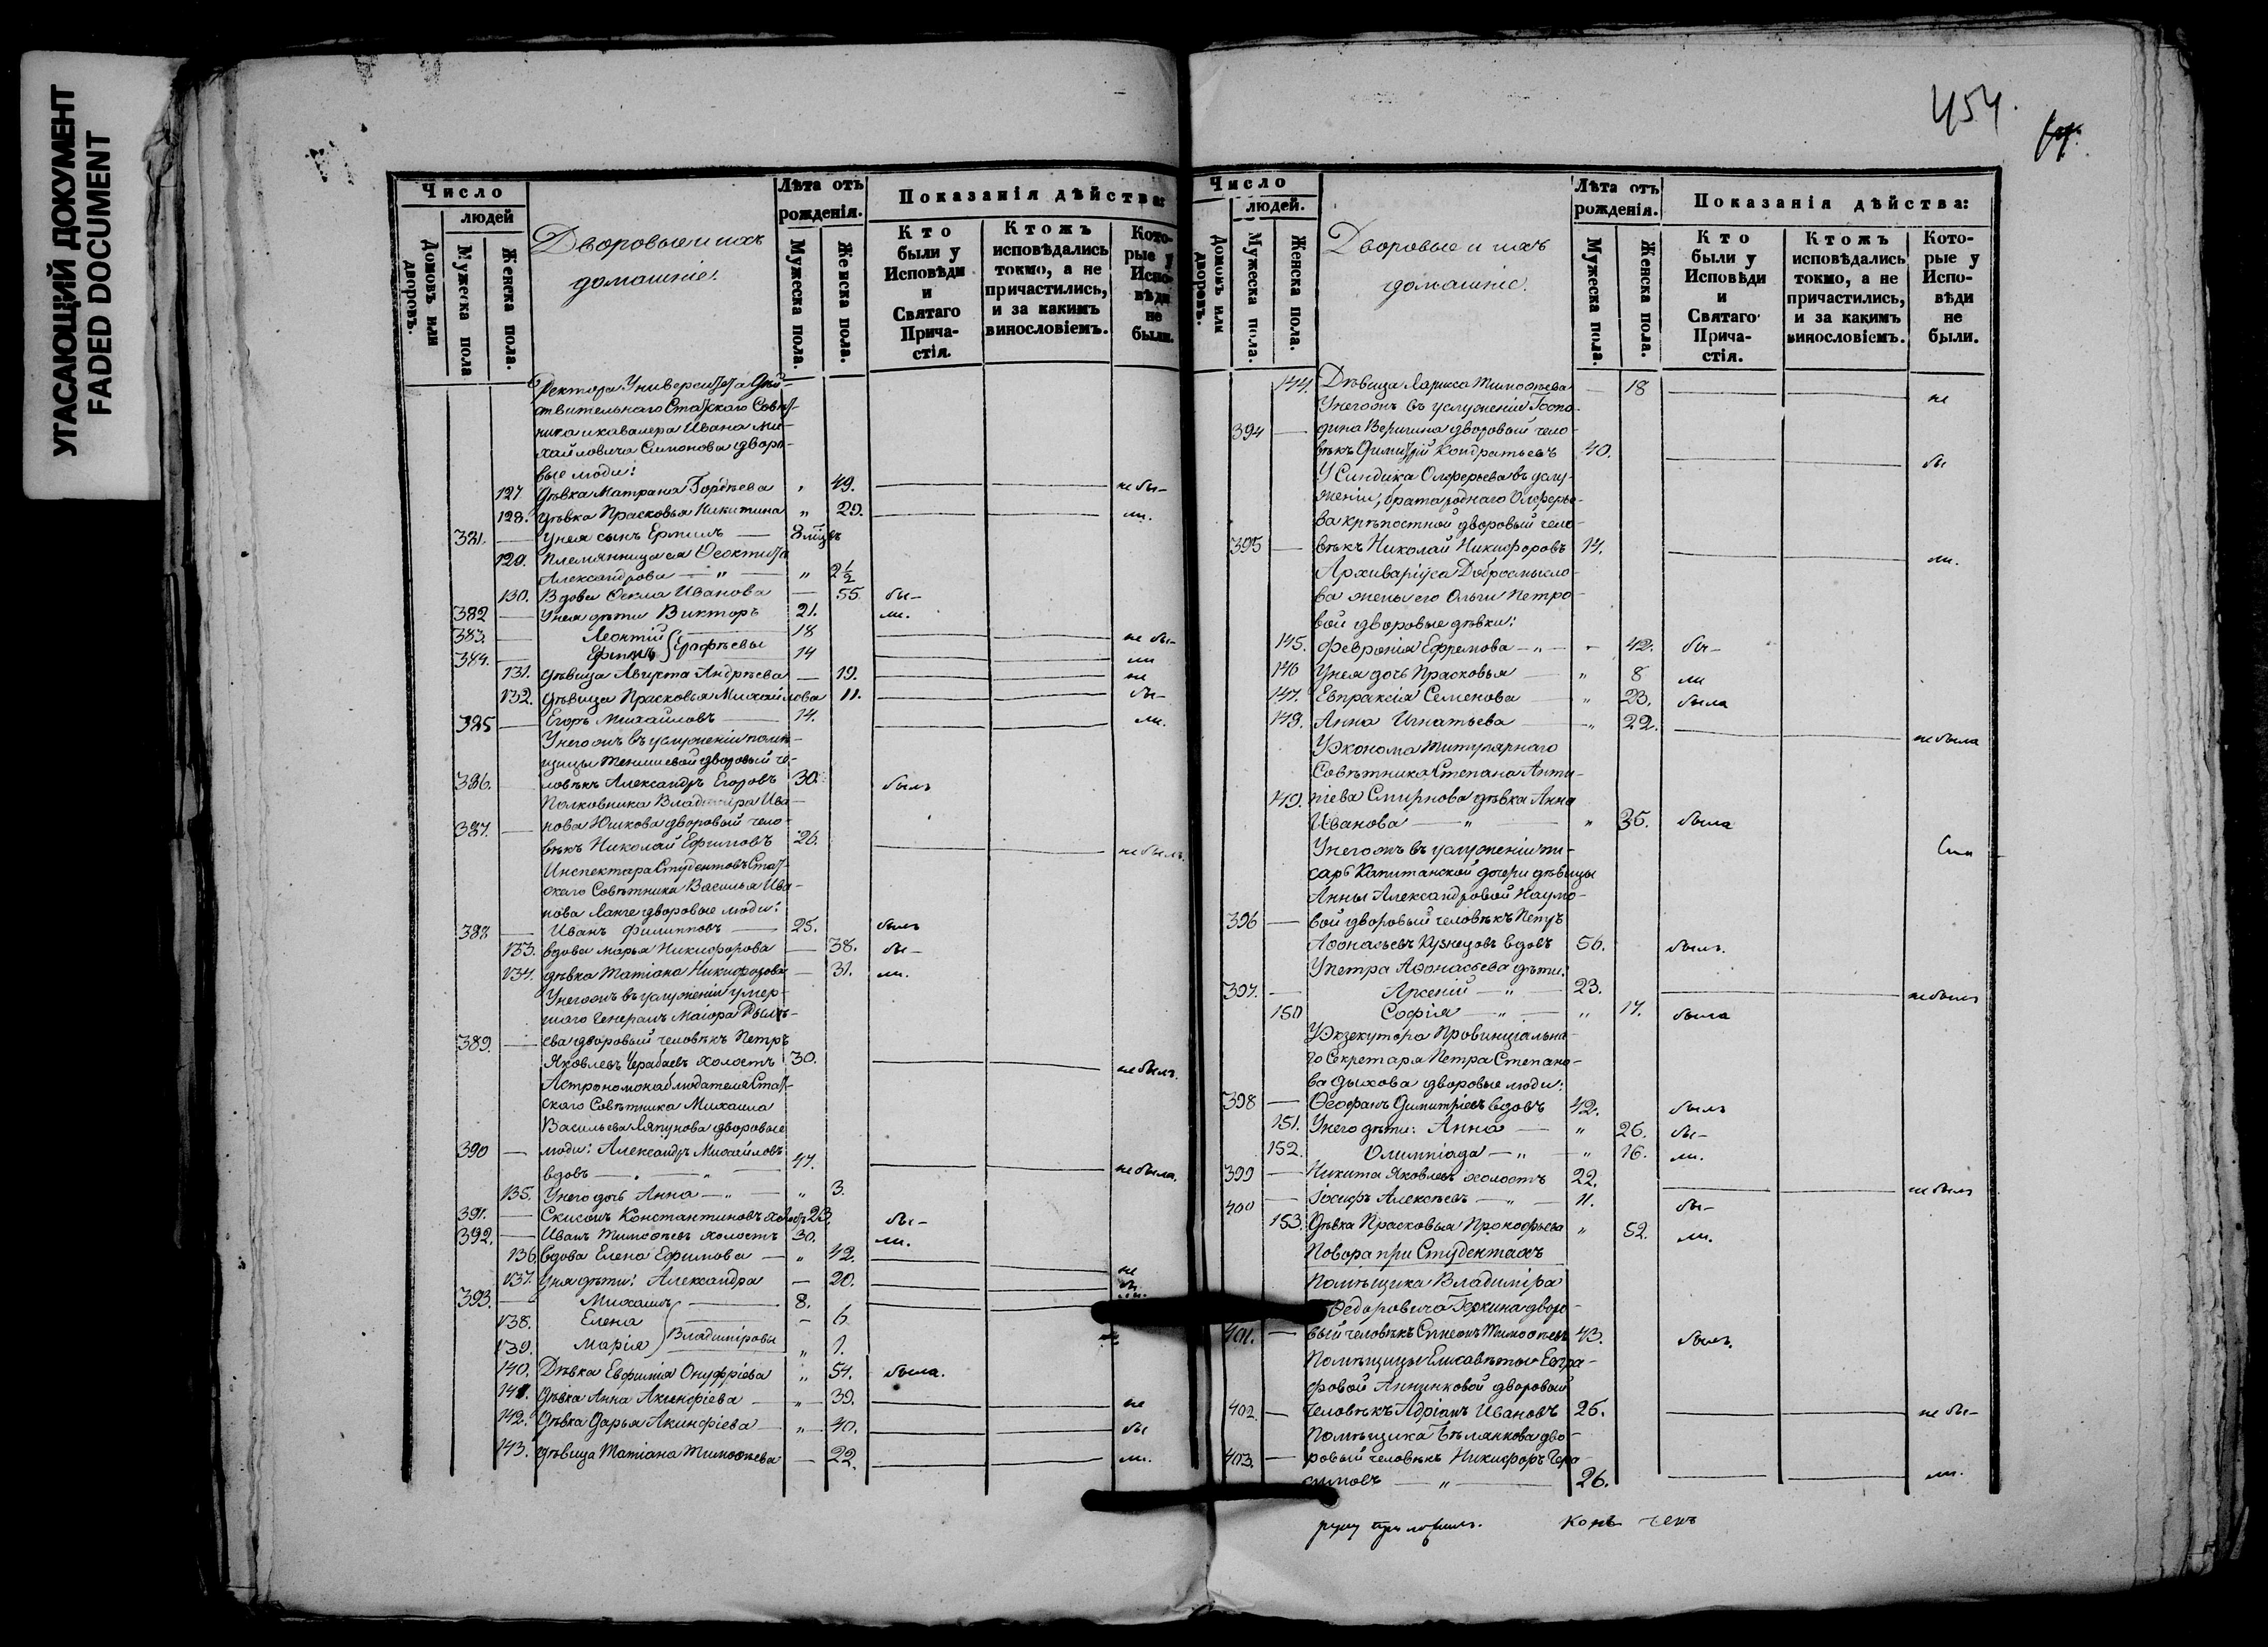 УГАСАЮЩИЙ ДОКУМЕНТ
FADED DOCUMENT
Число
людей
Домовъ или дворовъ.
Мужеска пола
Женска пола.
Дворовые и ихъ
домашніе.
Лѣта отъ
рожденія.
Мужеска пола.
Женска пола.
Показанія дѣйства:
Кто
были у
Исповѣди
и
Святаго
Прича-
стія.
Ктожъ
исповѣдались
токмо, а не
причастились,
и за какимъ
винословіемъ.
Кото-
рые у
Испо-
вѣди
не
были.
Ректора Университета Дѣй-
ствительнаго Статскаго Совѣт-
ника и кавалера Ивана Ми-
хайловича Симонова дворо-
вые люди:
127. Дѣвка Матрона Гордѣева " 49. не бы-
128. дѣвка Прасковья Никитина " 29. ли.
381. У нея сынъ Ермилъ 8 мѣцъ
129. Племянница ея Феоктиста
Александрова " " 2½
130. Вдова Фекла Иванова 55 бы-
382 У нея дѣти Викторъ 21. ли.
383. Леонтій 18 не бы-
384. Ерофѣевы 14 ли
131. дѣвица Августа Андрѣева 19. не
132. дѣвица Прасковья Михайлова 11. бы-
385 Егоръ Михайловъ 14. ли.
У него жъ въ услуженіи помѣ-
щицы Теншевой дворовый че-
386. ловѣкъ Александръ Егоровъ 30. былъ
Полковника Владиміра Ива-
нова Юшкова дворовый чело-
387. вѣкъ Николай Ефимовъ 26. не былъ.
Инспектора Студентовъ Стат-
скаго Совѣтника Василья Ива-
нова Ланге дворовые люди:
388 Иванъ Филипповъ 25. былъ
133. вдова Марья Никифорова 38. бы-
134. дѣвка Татіана Никифорова 31. ли.
У него жъ въ услуженіи умер-
шаго Генералъ Маіора
389. дворовый человѣкъ Петръ
Яковлевъ холостъ 30. не былъ.
Астрономонаблюдателя Стат-
скаго Совѣтника Михаила
Васильева Ляпунова дворовые
390 люди: Александръ Михайловъ
вдовъ " 47. не были.
135. У него дочь Анна " " 3.
391. Константиновъ 23. бы-
392. Иванъ Тимофѣевъ холостъ 30. ли.
136. вдова Елена Ефимова " 42.
137. У нея дѣти: Александра 20. не
393. Михаилъ 8. бы
138. Елена 6 ли.
139. Марія Владиміровы " 1.
140. Дѣвка Евфимія Онуфріева " 54. была.
141. Дѣвка Анна Акинфіева " 39. не
142. Дѣвка Дарья Акинфіева " 40. бы
143. дѣвица Татіана Тимофѣева 22. ли.
454.
Число
людей.
Домовъ или дворовъ.
Мужеска пола.
Женска пола.
Дворовые и ихъ
домашніе.
Лѣта отъ
рожденія.
Мужеска пола.
Женска пола.
Показанія дѣйства:
Кто
были у
Исповѣди
и
Святаго
Прича-
стія.
Ктожъ
исповѣдались
токмо, а не
причастились,
и за какимъ
винословіемъ.
Кото-
рые у
Испо-
вѣди
не
были.
144. Дѣвица Лариса Тимофѣева 18 не
У него жъ въ услуженіи Госпо-
394 дина Веригина дворовый чело-
вѣкъ Димитрій Кондратьевъ 40. бы
У Синдика Олферьева въ услу-
женіи, брата роднаго Олферье-
ва крѣпостной дворовый чело-
395 вѣкъ Николай Никифоровъ 14. ли.
Архиваріуса Добросмысло-
ва жены его Ольги Петро-
вой дворовые дѣвки:
145. Февронія Ефремова " 42. бы-
146 У нея дочь Прасковья " 8 ли
147. Евпраксія Семенова " 23. была
148. Анна Игнатьева " 22. не была
У Эконома Титулярнаго
Совѣтника Степана Анти-
149. піева Смирнова дѣвка Анна
Иванова " " 35. была
У него жъ въ услуженіи пи-
сарь Капитанской дочери дѣвицы
Анны Александровой Наумо-
396 вой дворовый человѣкъ Петръ
Афонасьевъ Кузнецовъ вдовъ 56. былъ.
У Петра Афонасьева дѣти:
397. Арсеній " 23. не былъ
150 Софія " " 17. была
У Экзекутора Провинціальна-
го Секретаря Петра Степано-
ва дворовые люди:
398 Феофанъ Димитріевъ вдовъ 42. былъ
151. У него дѣти: Анна " 26. бы-
152. Олимпіада " " 16. ли.
399 Никита Яковлевъ холостъ 22. не былъ
400 Іосифъ Алексѣевъ " 11. бы-
153. Дѣвка Прасковья Прокофьева " 52. ли.
Повора при Студентахъ
Помѣщика Владиміра
Федоровича дворо-
401. вый человѣкъ Симеонъ Тимофѣевъ 43. былъ.
Помѣщицы Елисаветы Евгра-
фовой Анненковой дворовый
402. человѣкъ Адріанъ Ивановъ 25. не бы-
Помѣщика дво-
403. ровый человѣкъ Никифоръ Гера-
симовъ " 26. ли.